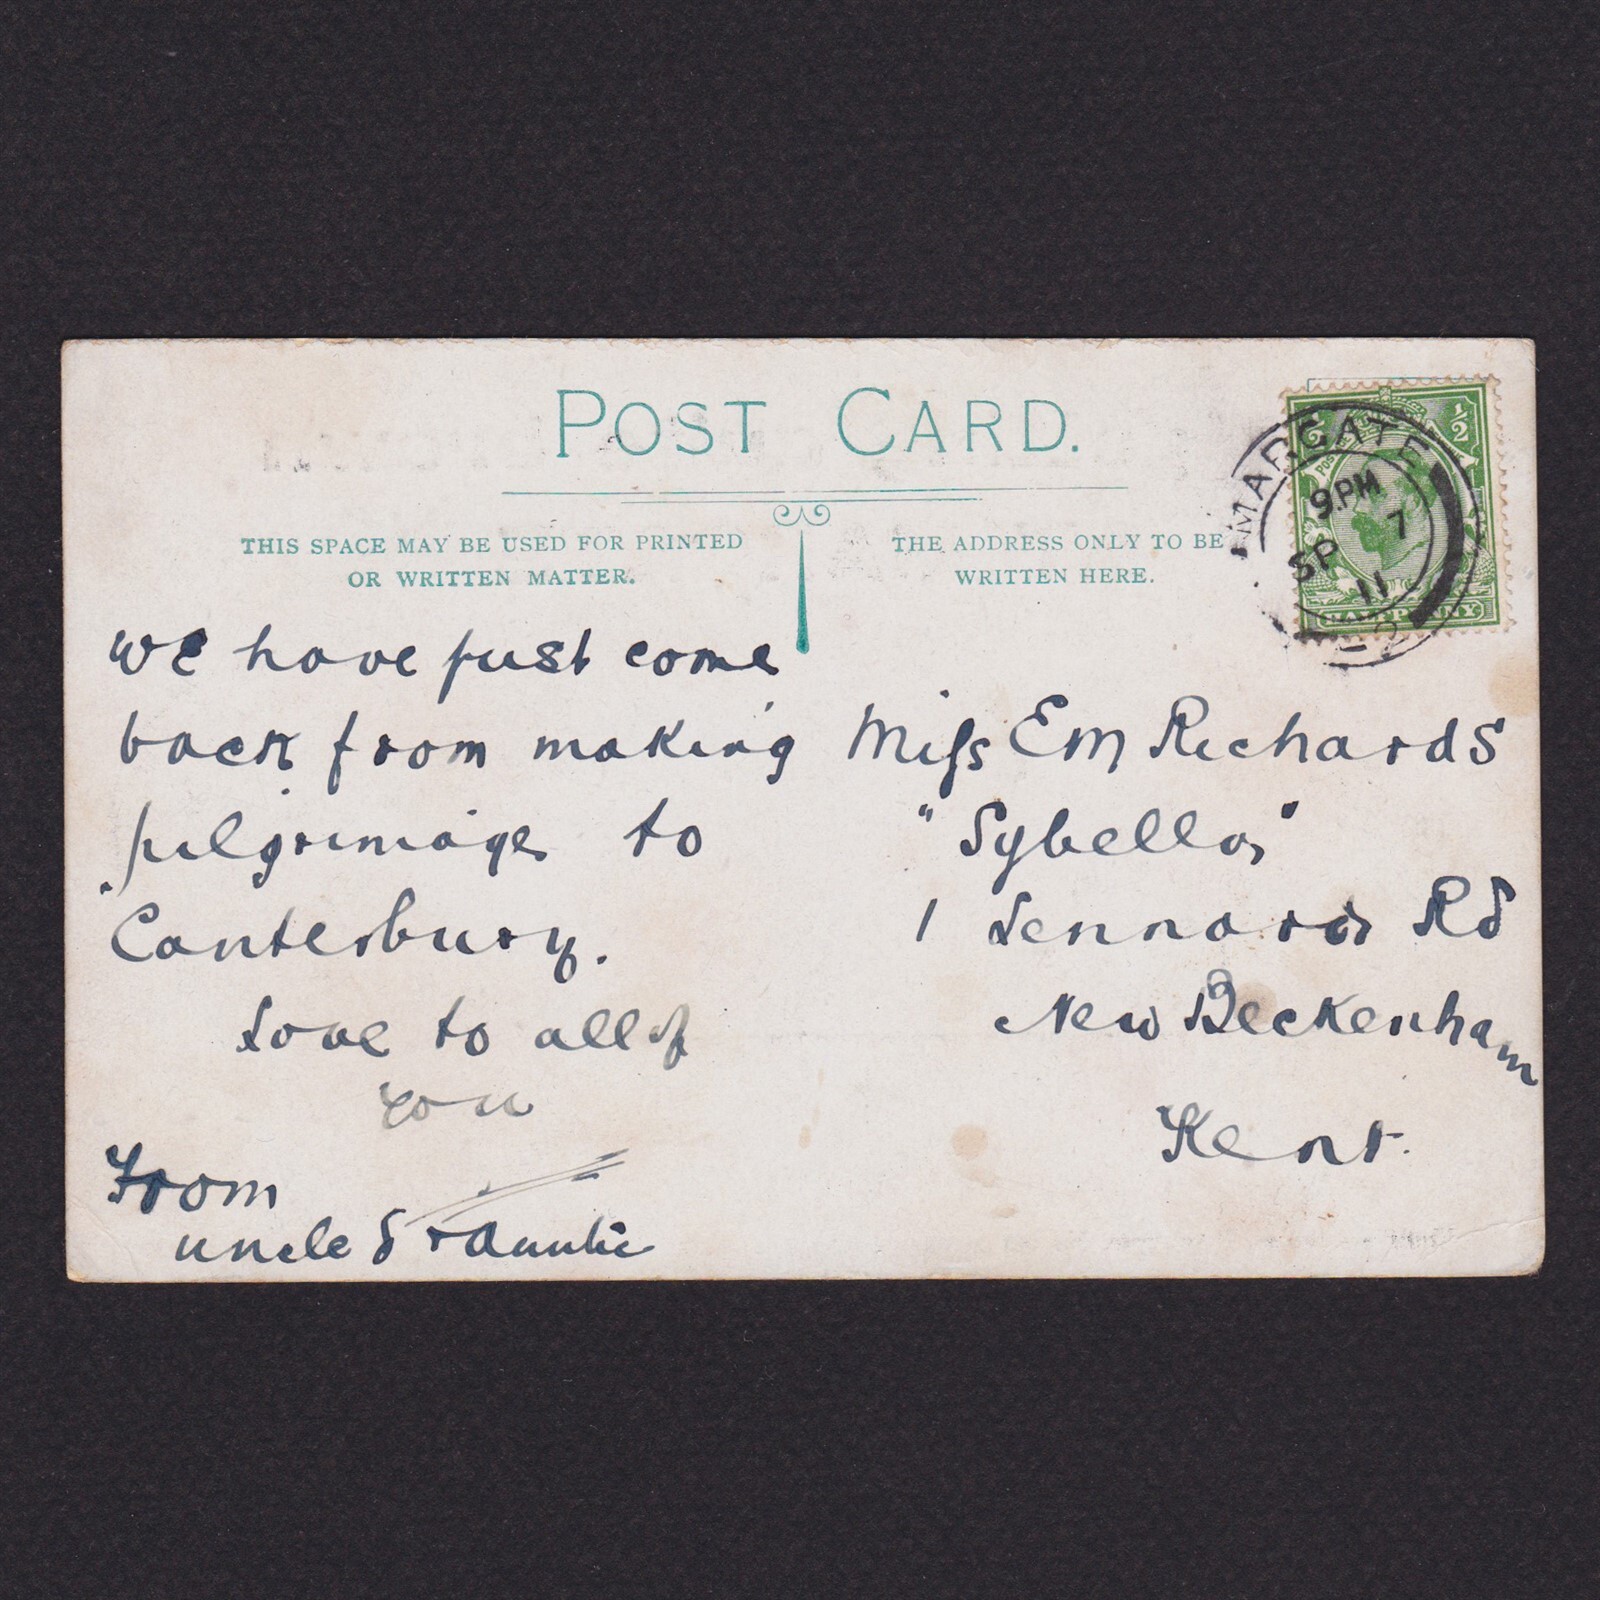 POST CARD.
THIS SPACE MAY BE USED FOR PRINTED
OR WRITTEN MATTER.
THE ADDRESS ONLY TO BE
WRITTEN HERE.
MARGATE
9.PM
SP 7
11
1/2
1/2
HALFPENNY
we have just come
back from making
pilgrimage to
Canterbury.
Love to all of
you
From
uncle S + Auntie
Miss Em Richards
"Sybella"
1 Lennard Rd
New Beckenham
Kent.